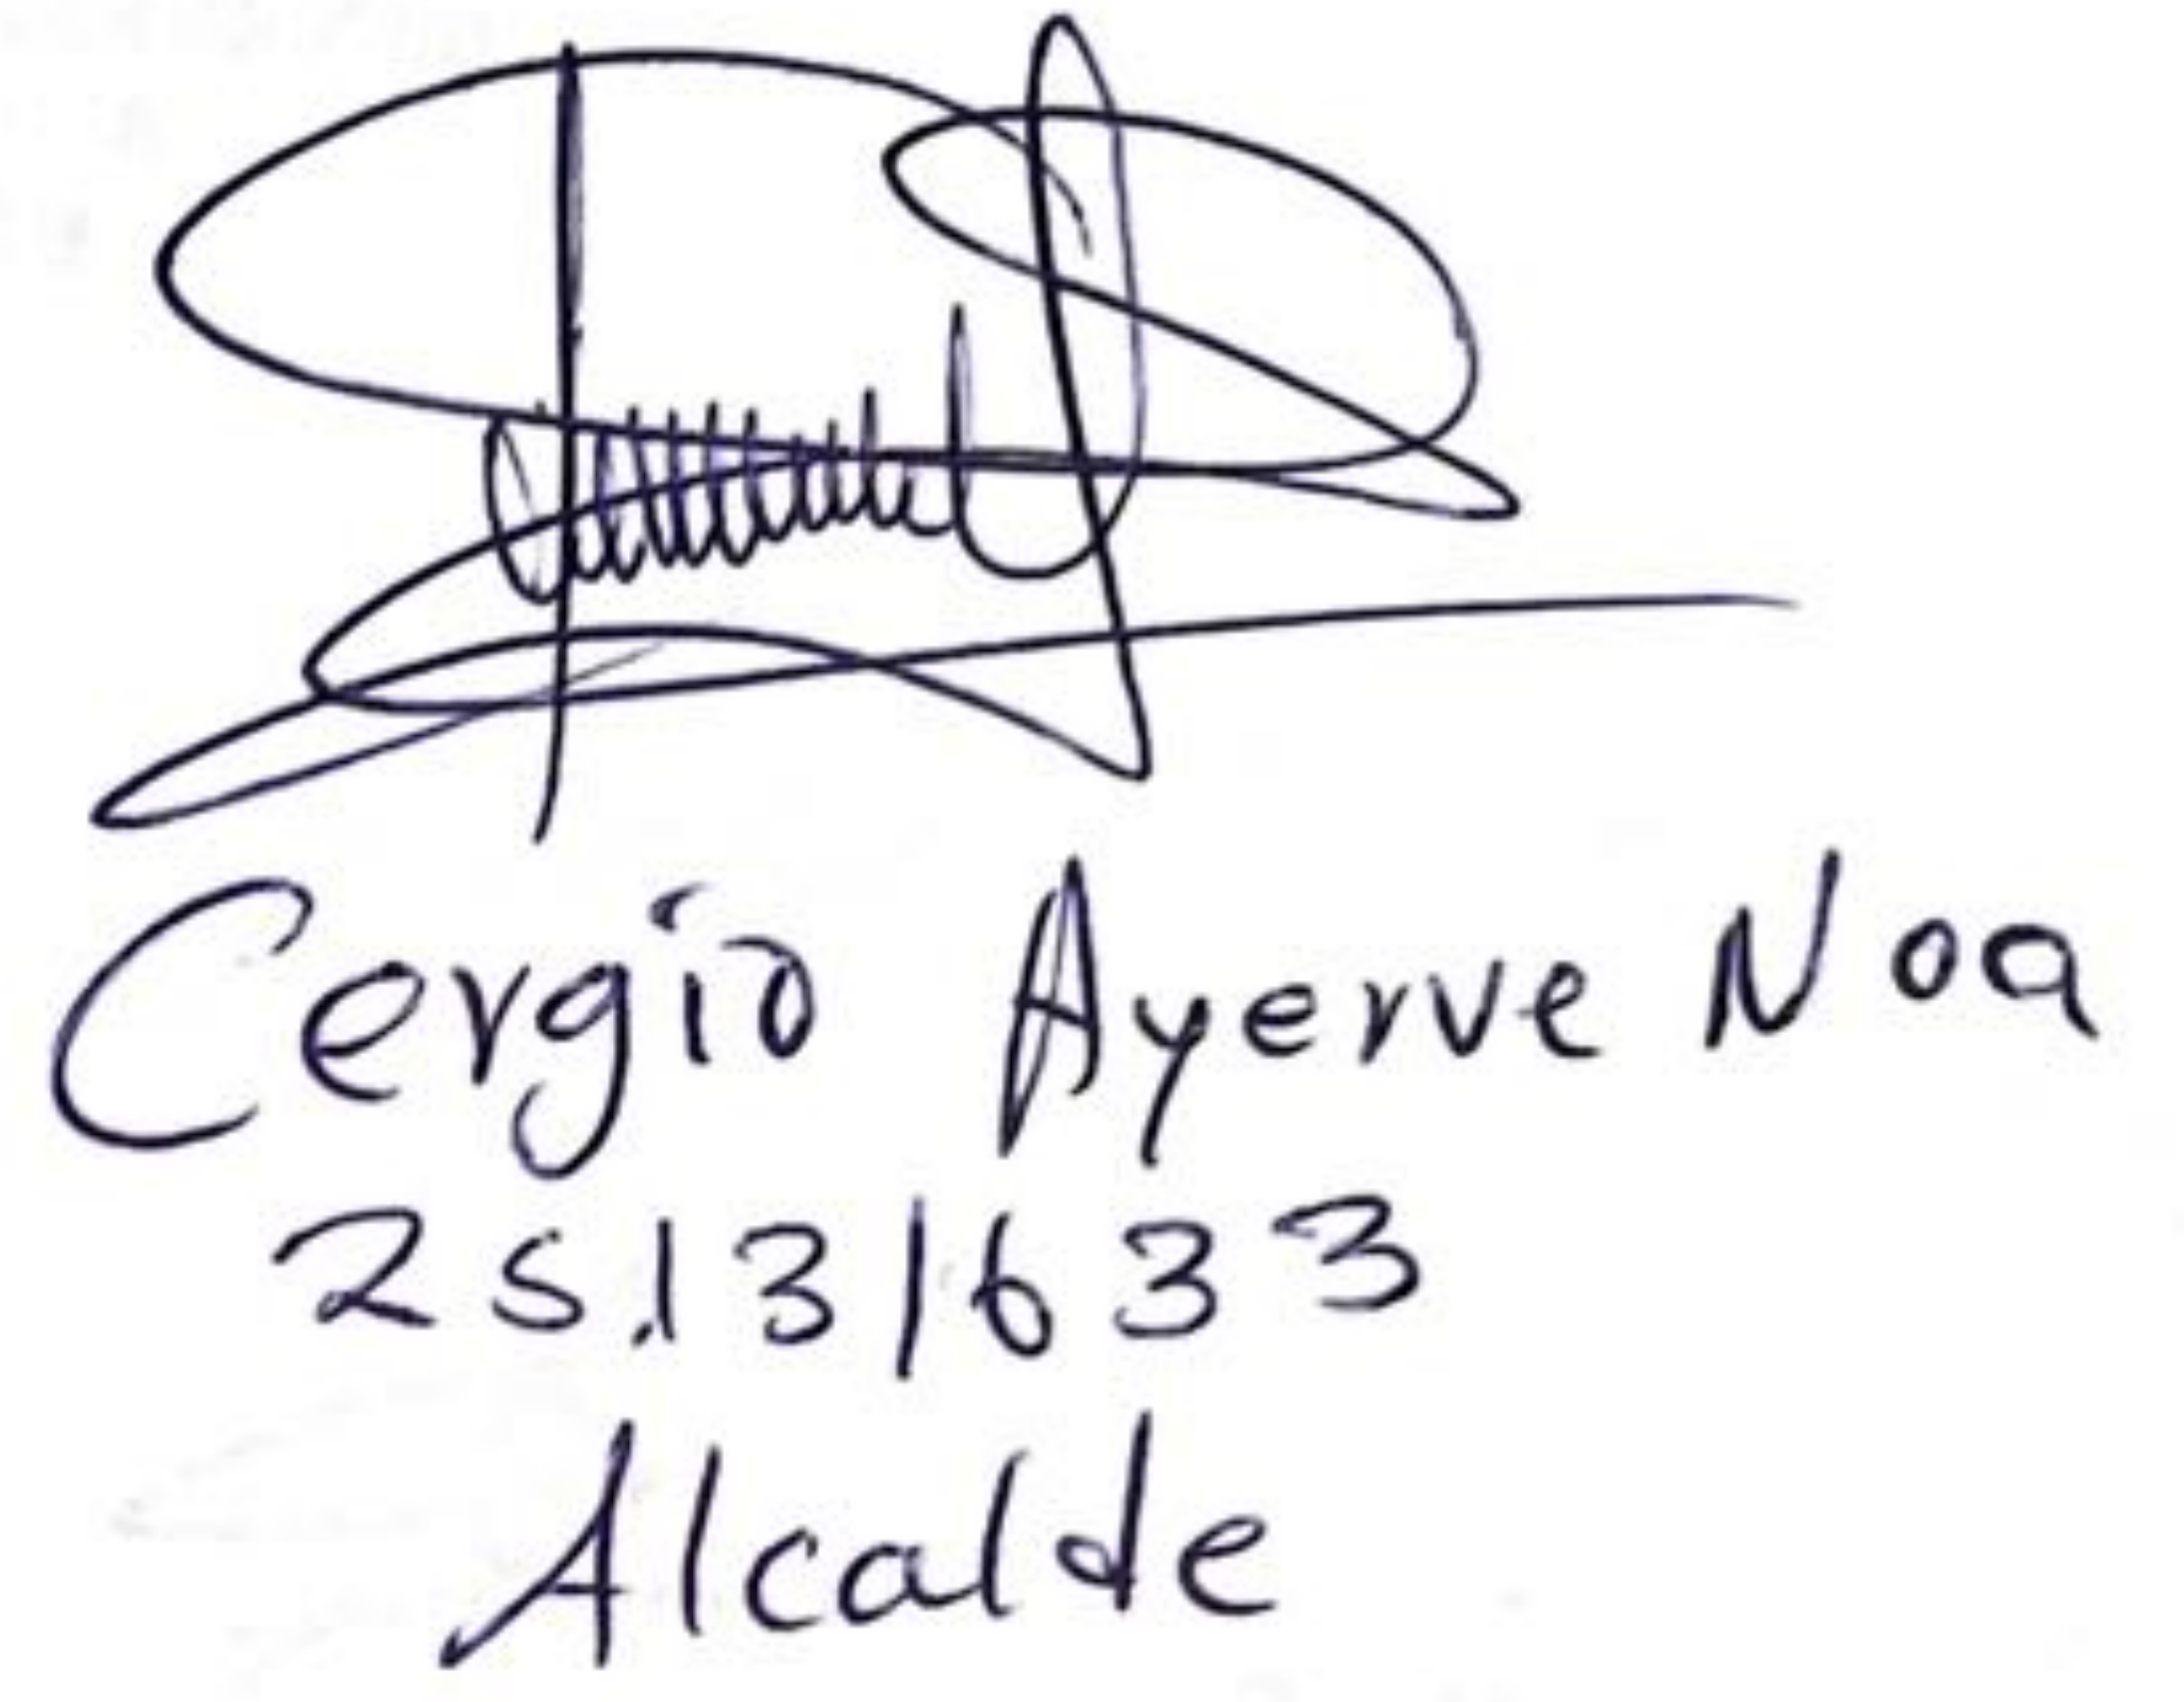 Cergio Ayerve Noa
25131633
Alcalde